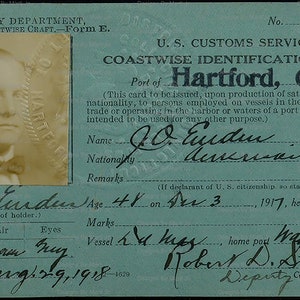 Y DEPARTMENT,
STWISE CRAFT.—FORM E.
No.
U. S. CUSTOMS SERVIC
COASTWISE IDENTIFICATION
Port of Hartford,
(This card to be issued, upon production of sat
nationality, to persons employed on vessels in the
trade or operating in the harbor or waters of a port
intended to be used for any other purpose.)
Name J.O.
Nationality American
Remarks
(If declarant of U. S. citizenship, so sta
Age 48 on Dec 3, 1917, h
of holder.)
Marks
air Eyes
Vessel home port
Robert D.
29, 1918 4679
Deputy